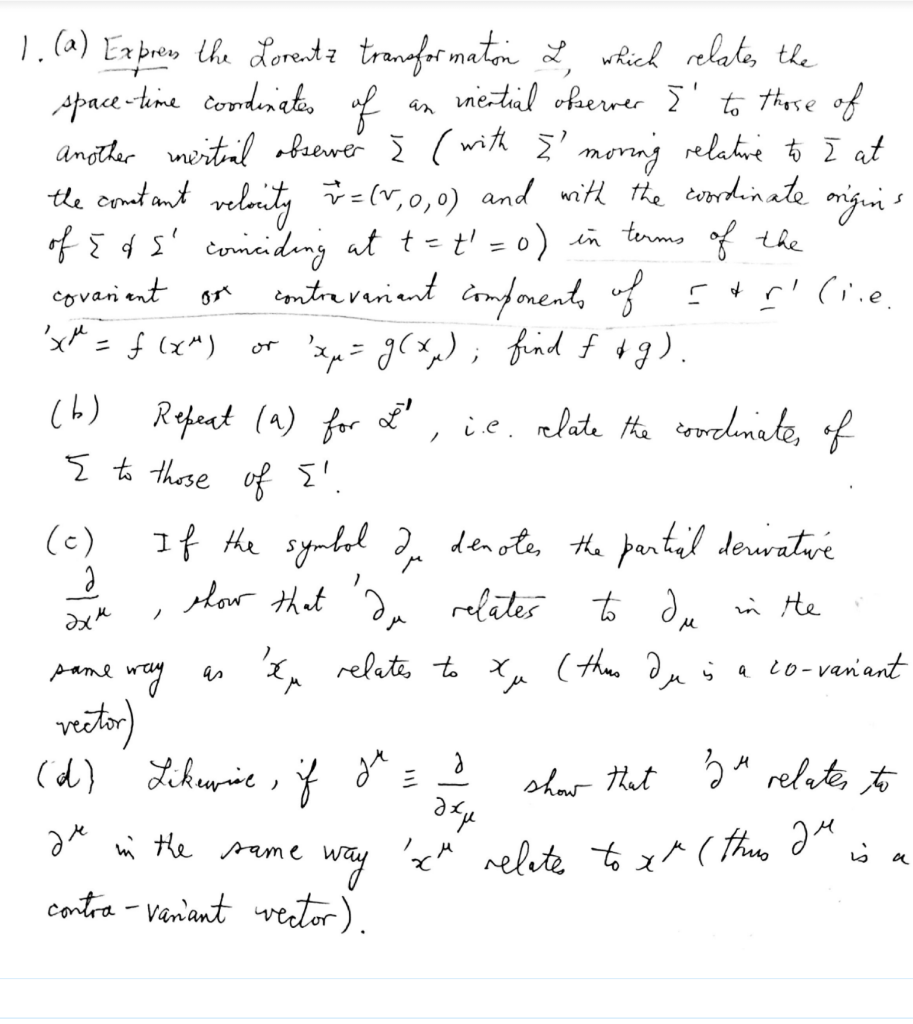 1. (a) Express the Lorentz transformation ℒ, which relates the
space-time coordinates of an inertial observer Σ' to those of
another inertial observer Σ (with Σ' moving relative to Σ at
the constant velocity v⃗ = (v,0,0) and with the coordinate origins
of Σ & Σ' coinciding at t = t' = 0) in terms of the
covariant or contravariant components of r & r' (i.e.
'x^μ = f(x^μ) or 'x_μ = g(x_μ); find f & g).
(b) Repeat (a) for ℒ^-1, i.e. relate the coordinates of
Σ to those of Σ'.
(c) If the symbol ∂_μ denotes the partial derivative
∂/∂x^μ, show that '∂_μ relates to ∂_μ in the
same way as 'x_μ relates to x_μ (thus ∂_μ is a co-variant
vector)
(d) Likewise, if ∂^μ ≡ ∂/∂x_μ show that '∂^μ relates to
∂^μ in the same way 'x^μ relate to x^μ (thus ∂^μ is a
contra-variant vector).